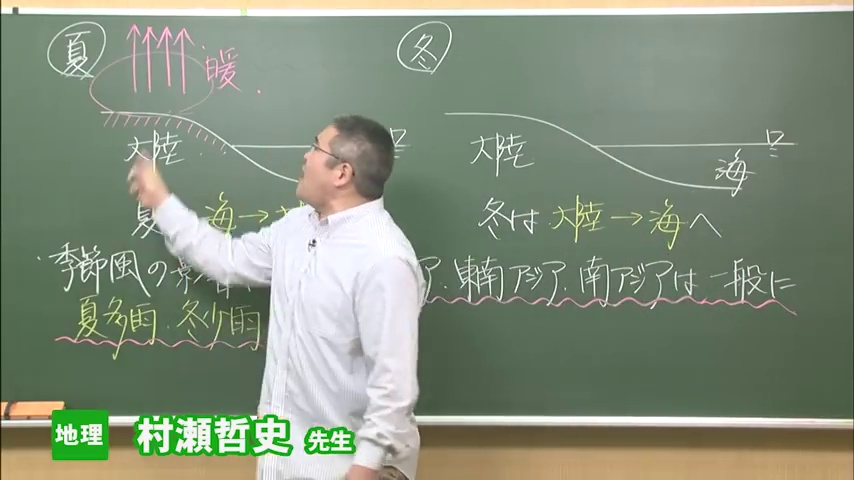 夏
暖.
冬
大陸
大陸
海
夏
海→
冬は 大陸→海へ
・季節風の影
ア.東南アジア.南アジアは一般に
夏多雨.冬少雨
地理 村瀬哲史 先生